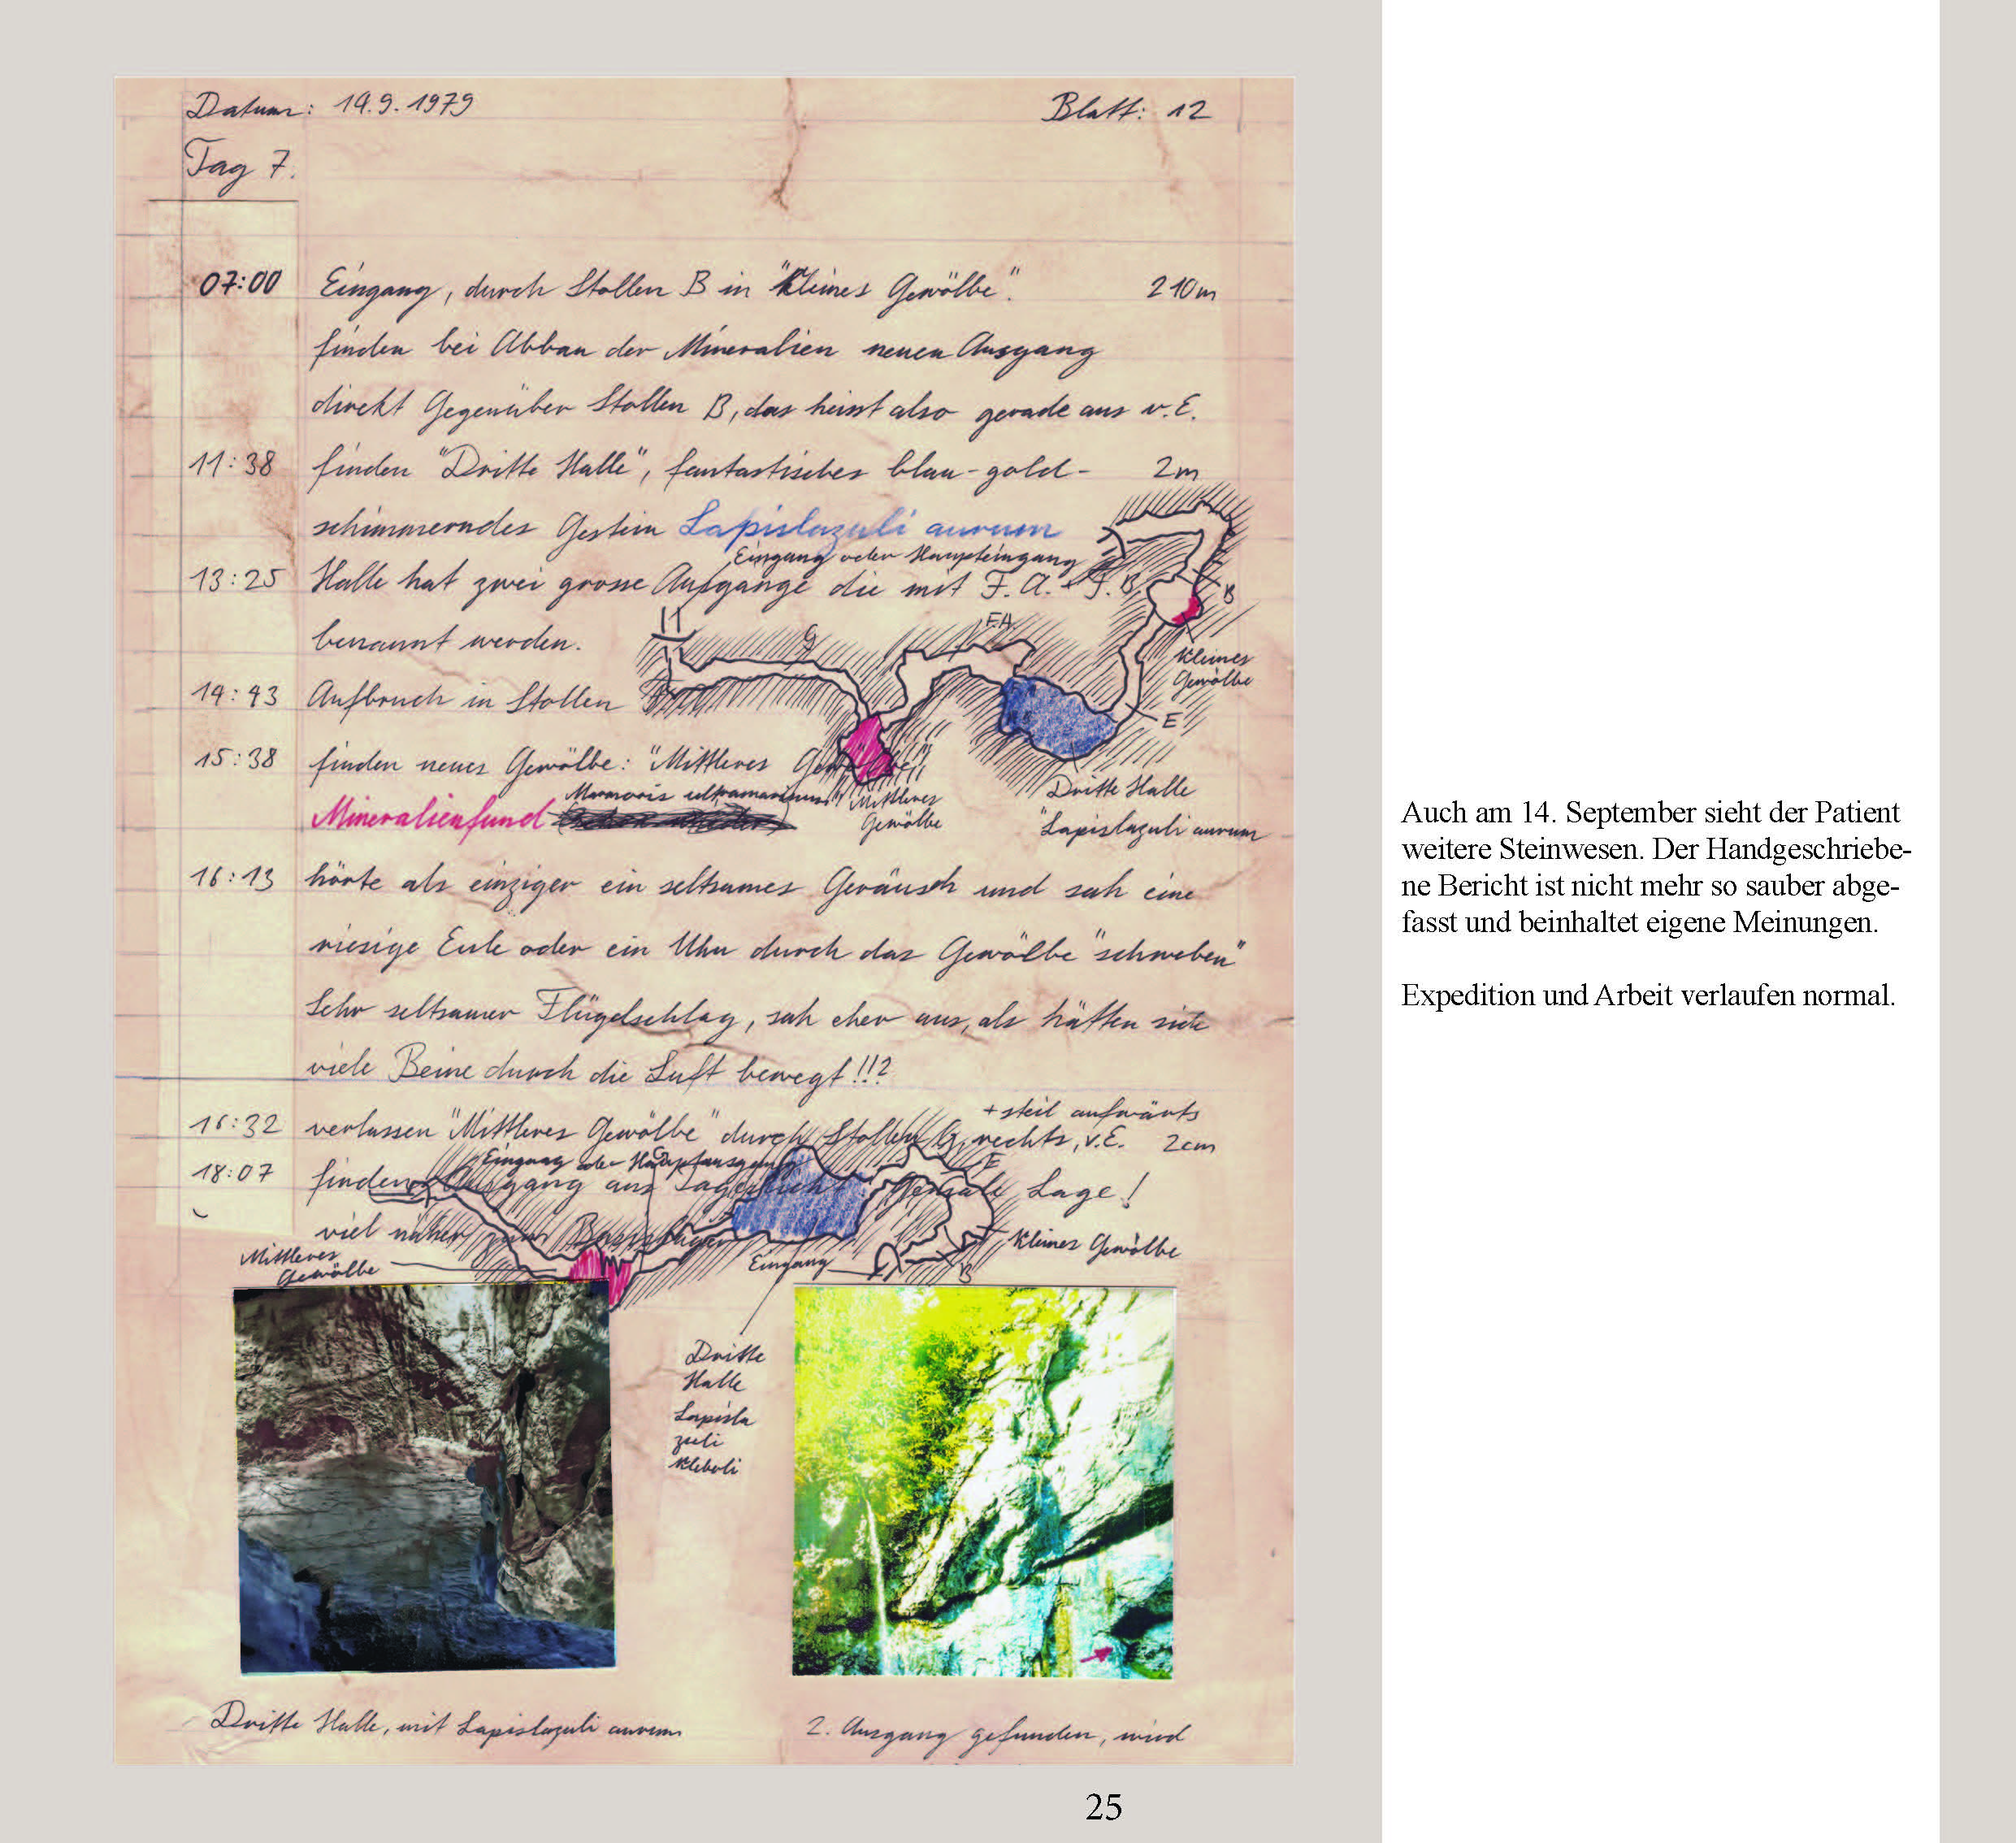 Datum: 14.9.1979
Blatt: 12
Tag 7.
07:00 Eingang, durch Stollen B in "Kleines Gewölbe". 210m
finden bei Abbau der Mineralien neuen Ausgang
direkt Gegenüber Stollen B, das heisst also gerade aus v.E.
11:38 finden "Dritte Halle", fantastisches blau-gold- 2m
schimmerndes Gestein Lapislazuli aurum
Eingang oder Haupteingang
13:25 Halle hat zwei grosse Ausgänge die mit F.A. + F.B
benannt werden.
B
G
F.A.
Kleines
Gewölbe
14:43 Aufbruch in Stollen
E
15:38 finden neues Gewölbe: "Mittleres Gewölbe"
Mineralienfund
Mittleres
Gewölbe
Dritte Halle
"Lapislazuli aurum
16:13 hörte als einziger ein seltsames Geräusch und sah eine
riesige Eule oder ein Uhu durch das Gewölbe "schweben"
Sehr seltsamer Flügelschlag, sah eher aus, als hätten sich
viele Beine durch die Luft bewegt!!?
+ steil aufwärts
16:32 verlassen "Mittleres Gewölbe" durch Stollen G, rechts, v.E. 2cm
Eingang oder Hauptausgang
E
18:07 finden Ausgang ans Tageslicht. Geniale Lage!
viel näher zum Basislager
Mittleres
Gewölbe
Eingang
B
Kleines Gewölbe
Dritte
Halle
Lapisla
zuli
Dritte Halle, mit Lapislazuli aurum
2. Ausgang gefunden, wird
Auch am 14. September sieht der Patient
weitere Steinwesen. Der Handgeschriebe-
ne Bericht ist nicht mehr so sauber abge-
fasst und beinhaltet eigene Meinungen.
Expedition und Arbeit verlaufen normal.
25